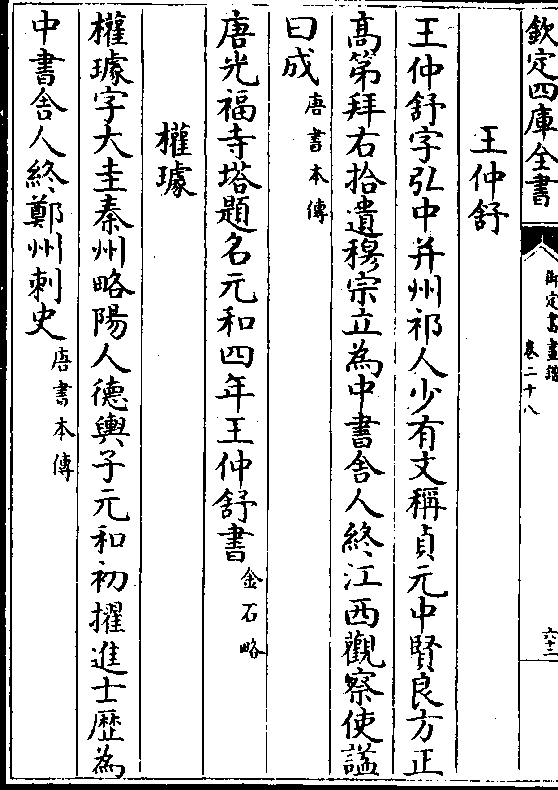 欽定四庫全書
御定書畫譜
卷二十八
六十三
王仲舒
王仲舒字弘中并州祁人少有文稱貞元中賢良方正
高第拜右拾遺穆宗立為中書舎人終江西觀察使謚
曰成唐書本傳
唐光福寺塔題名元和四年王仲舒書金石略
權璩
權璩字大圭秦州略陽人德輿子元和初擢進士歴為
中書舎人終鄭州刺史唐書本傳